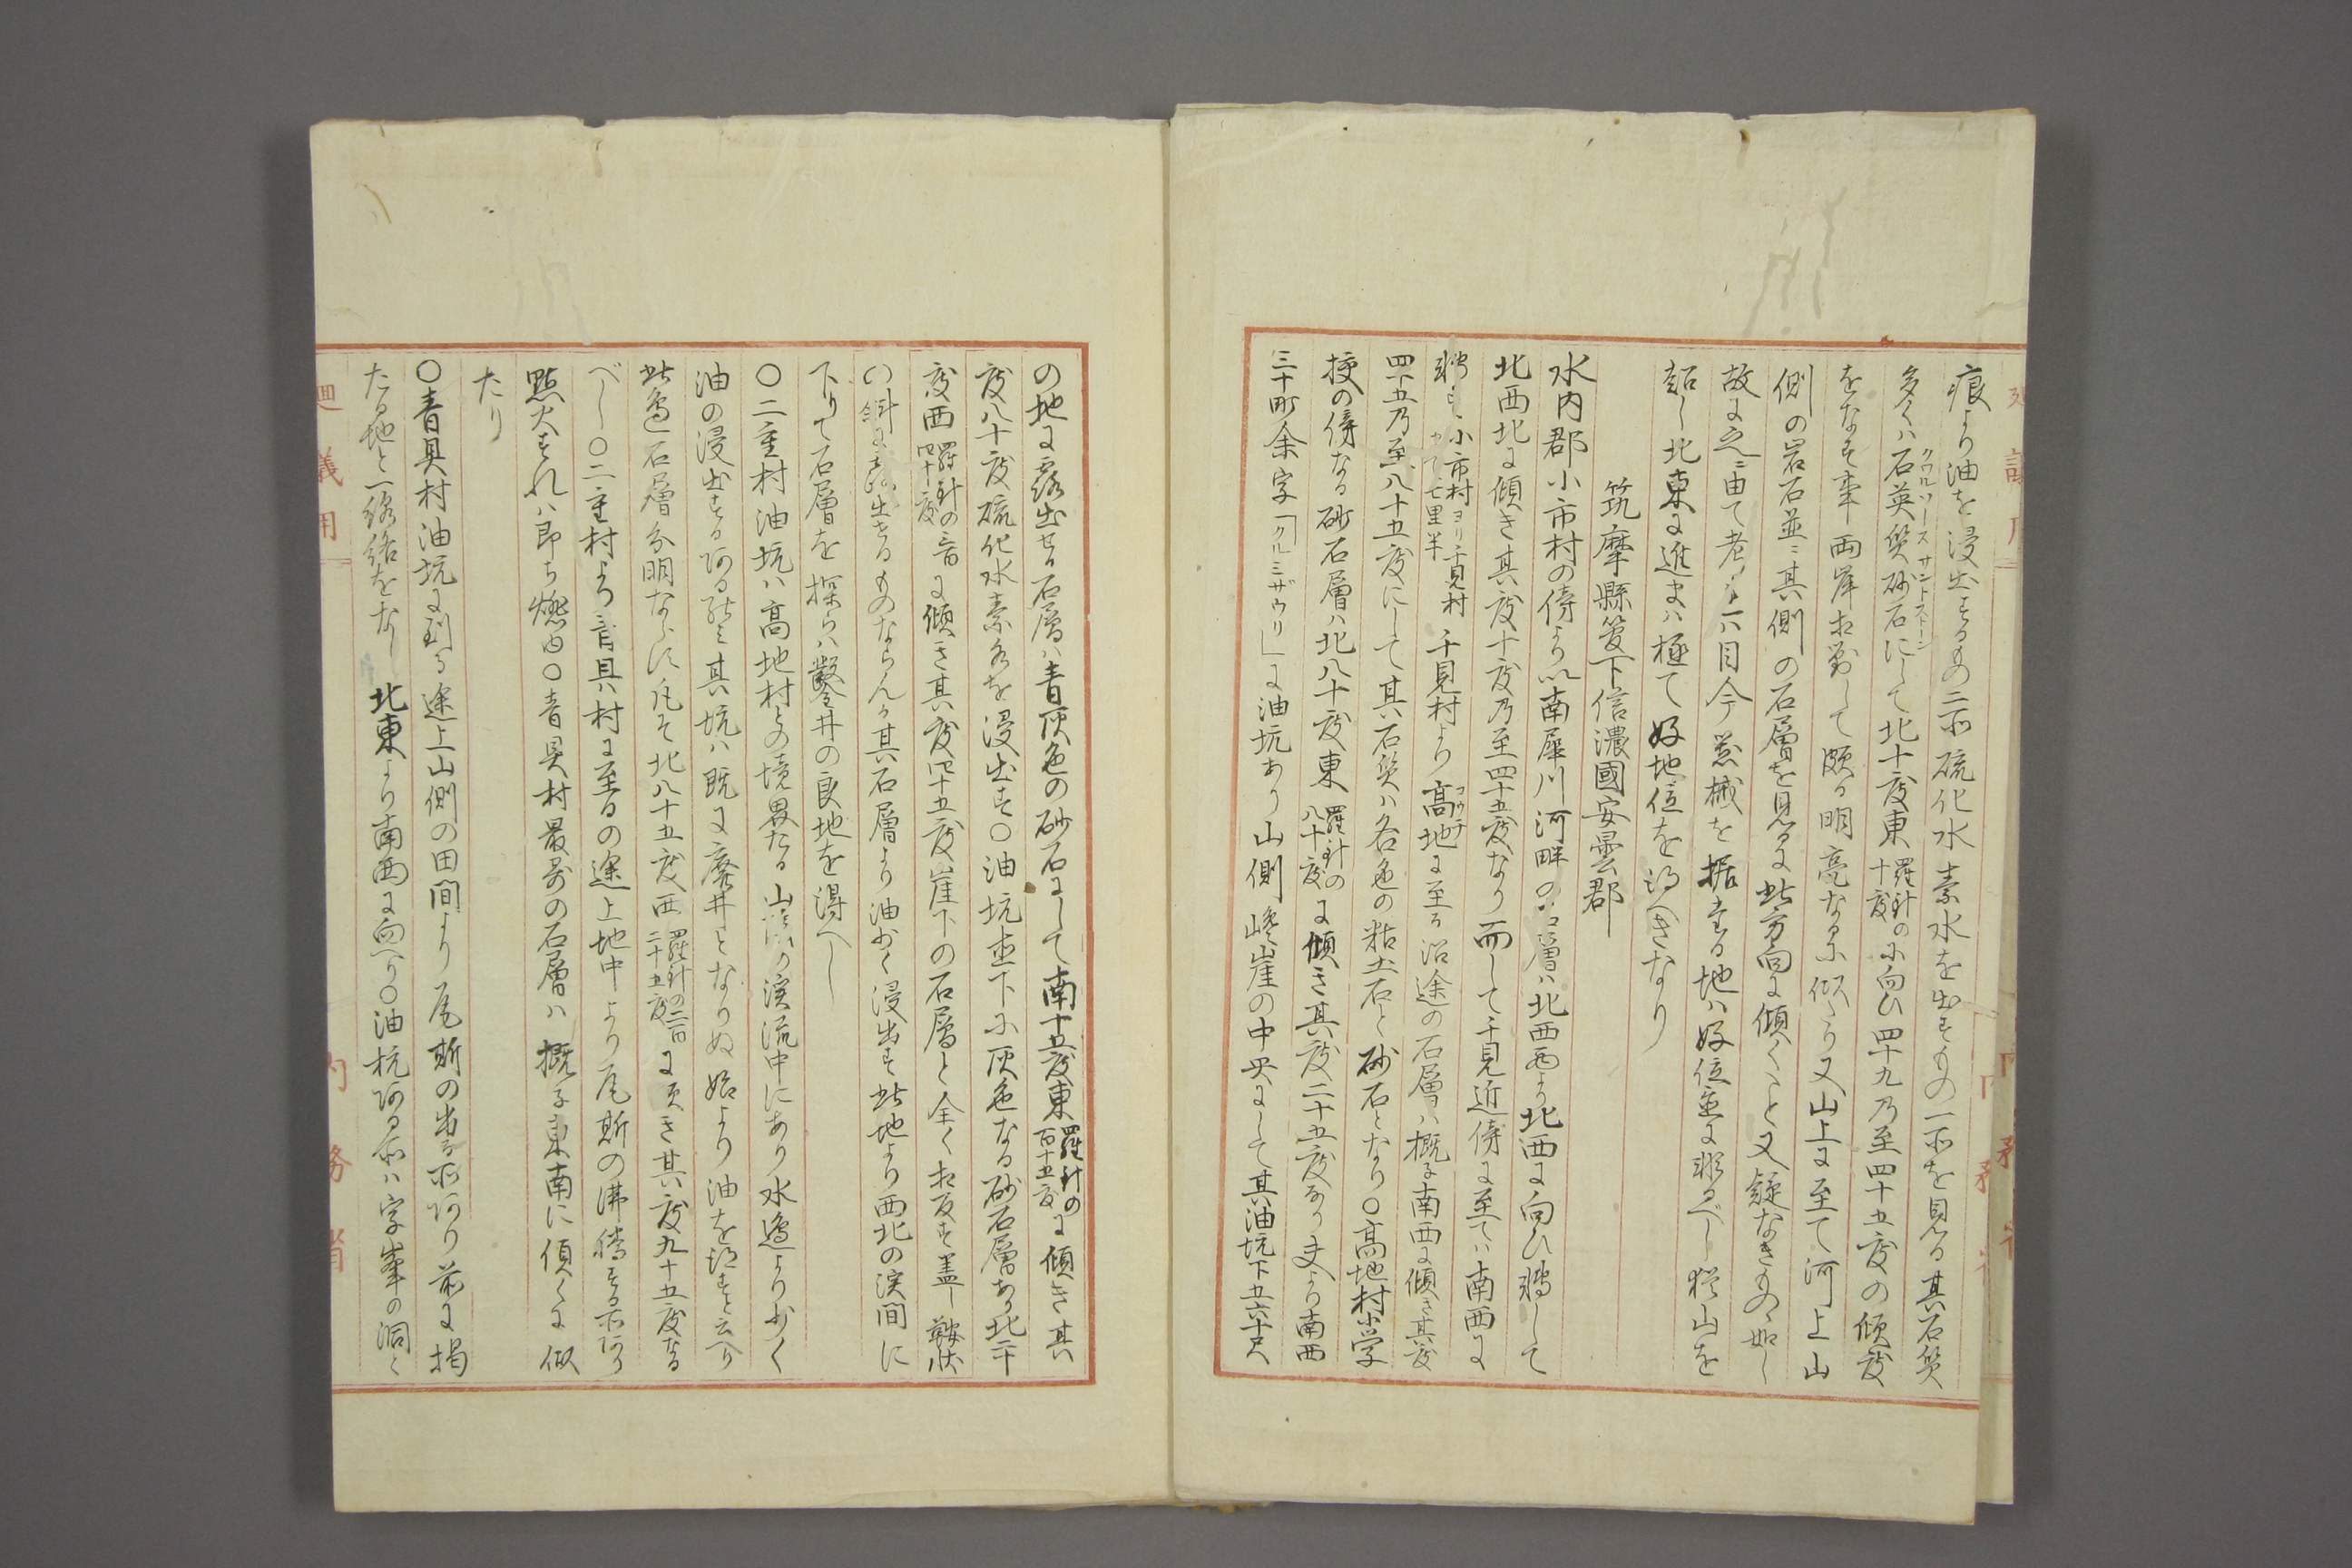 痕より油を浸出するもの二所硫化水素水を出すもの一所を見る其石質
多くハ石英質砂石にして北十度東羅針の十度に向ひ四十九乃至四十五度の傾度
をなす率両岸相對して頗る明亮なるに似たり又山上に至て河上山
側の岩石並ニ其側の石層を見るに此方向に傾くこと又疑なきものゝ如し
故に之ニ由て考ふれハ目今器械を据する地ハ好位置に非るべし猶山を
超し北東に進まハ極て好地位を得へきなり
筑摩縣管下信濃國安曇郡
水内郡小市村の傍より以南犀川河畔の石層ハ北西西より北西に向ひ轉して
北西北に傾き其度十度乃至四十五度なり而して千見近傍に至てハ南西に
轉す小市村ヨリ千見村ヤて七里半千見村より高地に至る沿途の石層ハ概子南西に傾き其度
四十五乃至八十五度にして其石質ハ各色の粘土石と砂石となり〇高地村小学
校の傍なる砂石層ハ北八十度東羅針の八十度に傾き其度二十五度なり夫より南西
三十町余字「クルミザワリ」に油坑あり山側嶮崖の中央にして其油坑下五六十尺
の地に露出せる石層ハ青灰色の砂石にして南十五度東羅針の百十五度に傾き其
度八十度硫化水素水を浸出す〇油坑直下に灰色なる砂石層あり北二十
度西羅針の三百四十度に傾き其度四十五度崖下の石層と全く相反す盖し鞍状
の斜に露出せるものならんか其石層より油少く浸出す此地より西北の渓間に
下りて石層を探らハ鑿井の良地を得へし
〇二重村油坑ハ高地村との境界たる山間の渓流中にあり水邊より少く
油の浸出する所る能ミ其坑ハ既に廃井となりぬ始より油を得すと云へり
此邊石層分明ならす凡そ北八十五度西羅針の二百二十五度に傾き其度九十五度なる
べし〇二重村より青具村に至るの途上地中より瓦斯の沸騰する所あり
點火すれハ即ち燃ゆ〇青具村最寄の石層ハ概子東南に傾くに似
たり
〇青具村油坑に到る途上山側の田間より瓦斯の出る所あり前に掲
たる地と一線路をなし北東より南西に向へり〇油坑ある所ハ字峯の洞と